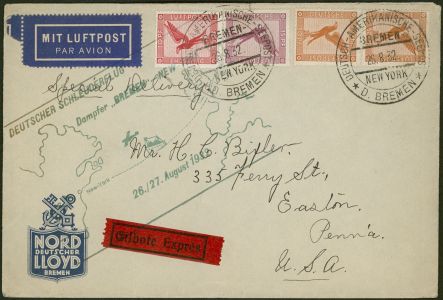 MIT LUFTPOST
PAR AVION
DEUTSCH-AMERIKANISCHE SEEPOST
BREMEN-
26.8.32
NEW YORK
D. BREMEN
DEUTSCH-AMERIKANISCHE-SEEPOST
BREMEN-
26.8.32
NEW YORK
* D. BREMEN *
Special Delivery
DEUTSCHER SCHLEUDERFLUG
Dampfer „BREMEN"-NEW
26./27. August 1932
Mr. H. C. Bixler.
333 Ferry St,
Easton,
Penn'a
U.S.A.
Eilbote Exprès
NORD
DEUTSCHER
LLOYD
BREMEN